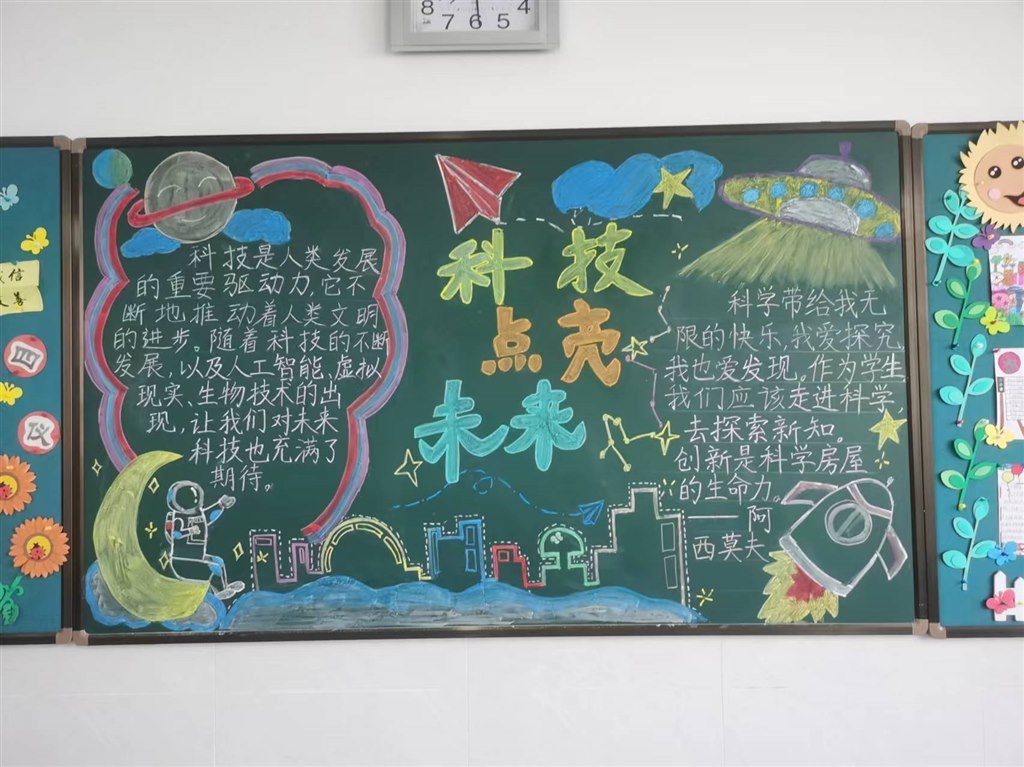 8 7 6 5 4
科技
点亮
未来
科技是人类发展
的重要驱动力,它不
断地推动着人类文明
的进步。随着科技的不断
发展,以及人工智能、虚拟
现实、生物技术的出
现,让我们对未来
科技也充满了
期待。
科学带给我无
限的快乐,我爱探究
我也爱发现。作为学生
我们应该走进科学,
去探索新知。
创新是科学房屋
的生命力。
——阿
西莫夫
信
四
仪